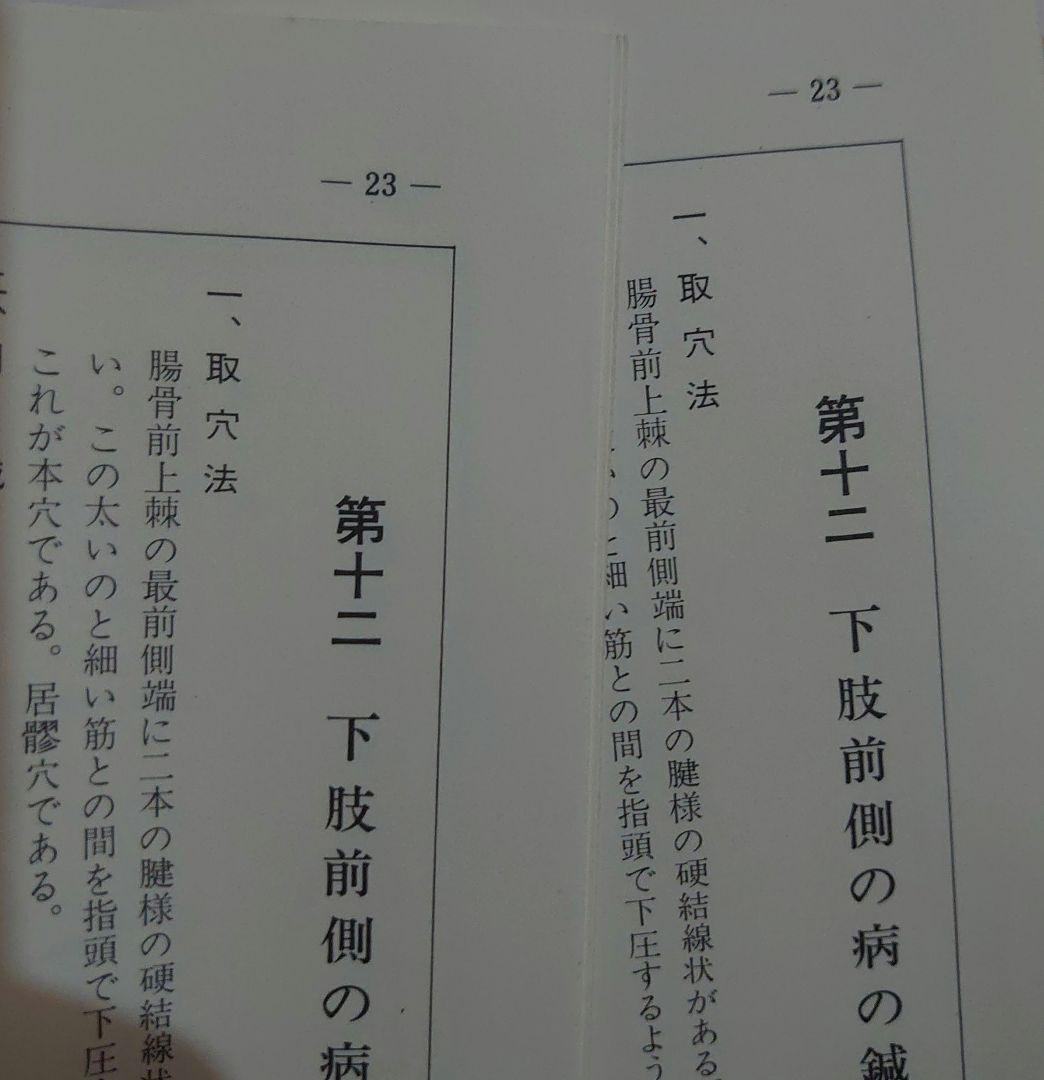 — 23 —
第十二 下肢前側の病の鍼
一、取穴法
腸骨前上棘の最前側端に二本の腱様の硬結線状がある
細い筋との間を指頭で下圧するよう
— 23 —
第十二 下肢前側の病
一、取穴法
腸骨前上棘の最前側端に二本の腱様の硬結線
い。この太いのと細い筋との間を指頭で下圧
これが本穴である。居髎穴である。